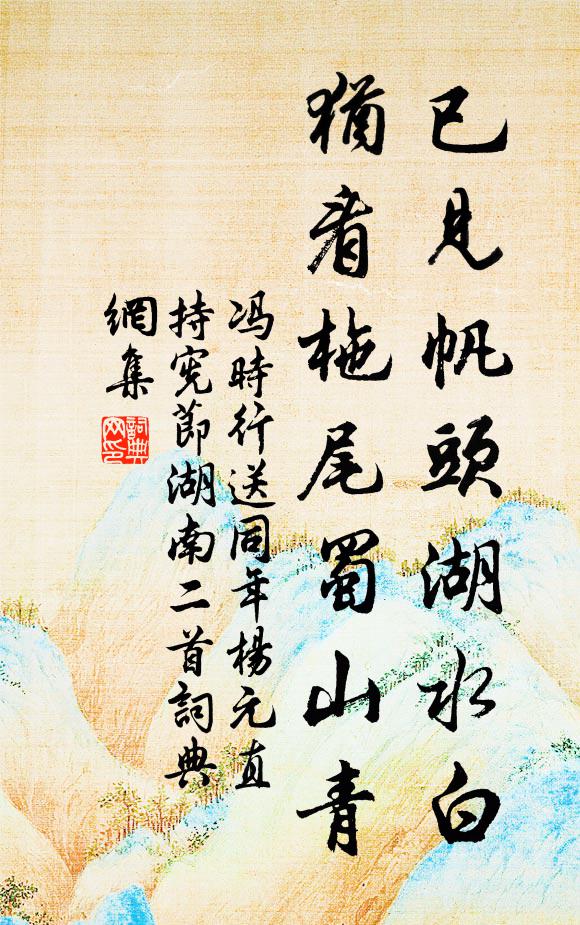 已見帆頭湖水白
猶看柂尾蜀山青
冯時行送同年楊元直
持宪節湖南二首詞典
網集
詞典
网印